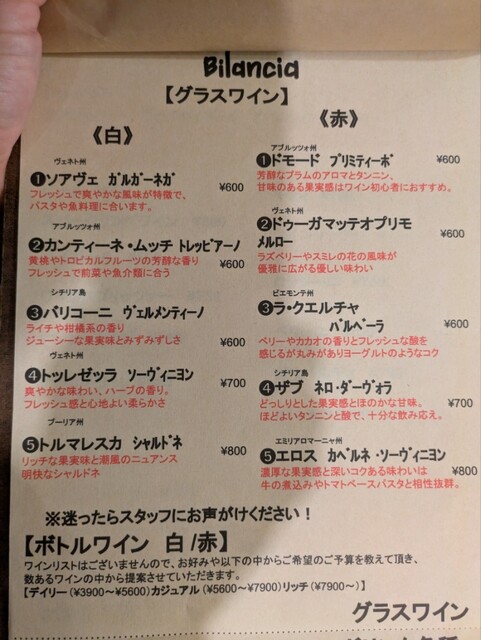 Bilancia
【グラスワイン】
《白》
ヴェネト州
❶ソアヴェ ガルガーネガ
フレッシュで爽やかな風味が特徴で、
パスタや魚料理に合います。 ¥600
アブルッツォ州
❷カンティーネ・ムッチ トレッビアーノ
黄桃やトロピカルフルーツの芳醇な香り
フレッシュで前菜や魚介類に合う ¥600
シチリア島
❸バリコーニ ヴェルメンティーノ
ライチや柑橘系の香り
ジューシーな果実味とみずみずしさ ¥600
ヴェネト州
❹トッレゼッラ ソーヴィニヨン ¥700
爽やかな味わい、ハーブの香り。
フレッシュ感と心地よい柔らかさ
プーリア州
❺トルマレスカ シャルドネ ¥800
リッチな果実味と潮風のニュアンス
明快なシャルドネ
《赤》
アブルッツォ州
❶ドモード プリミティーボ ¥600
芳醇なプラムのアロマとタンニン、
甘味のある果実感はワイン初心者におすすめ。
ヴェネト州
❷ドゥーガマッテオプリモ ¥600
メルロー
ラズベリーやスミレの花の風味が
優雅に広がる優しい味わい
ピエモンテ州
❸ラ・クエルチャ
バルベーラ ¥600
ベリーやカカオの香りとフレッシュな酸を
感じるが丸みがありヨーグルトのようなコク
シチリア島
❹ザブ ネロ・ダーヴォラ ¥700
どっしりとした果実感とほのかな甘味。
ほどよいタンニンと酸で、十分な飲み応え。
エミリアロマーニャ州
❺エロス カベルネ・ソーヴィニヨン
濃厚な果実感と深いコクある味わいは ¥800
牛の煮込みやトマトベースパスタと相性抜群。
※迷ったらスタッフにお声がけください！
【ボトルワイン 白/赤】
ワインリストはございませんので、お好みや以下の中からご希望のご予算を教えて頂き、
数あるワインの中から提案させていただきます。
【デイリー(¥3900～¥5600)カジュアル(¥5600～¥7900)リッチ(¥7900～)】
グラスワイン